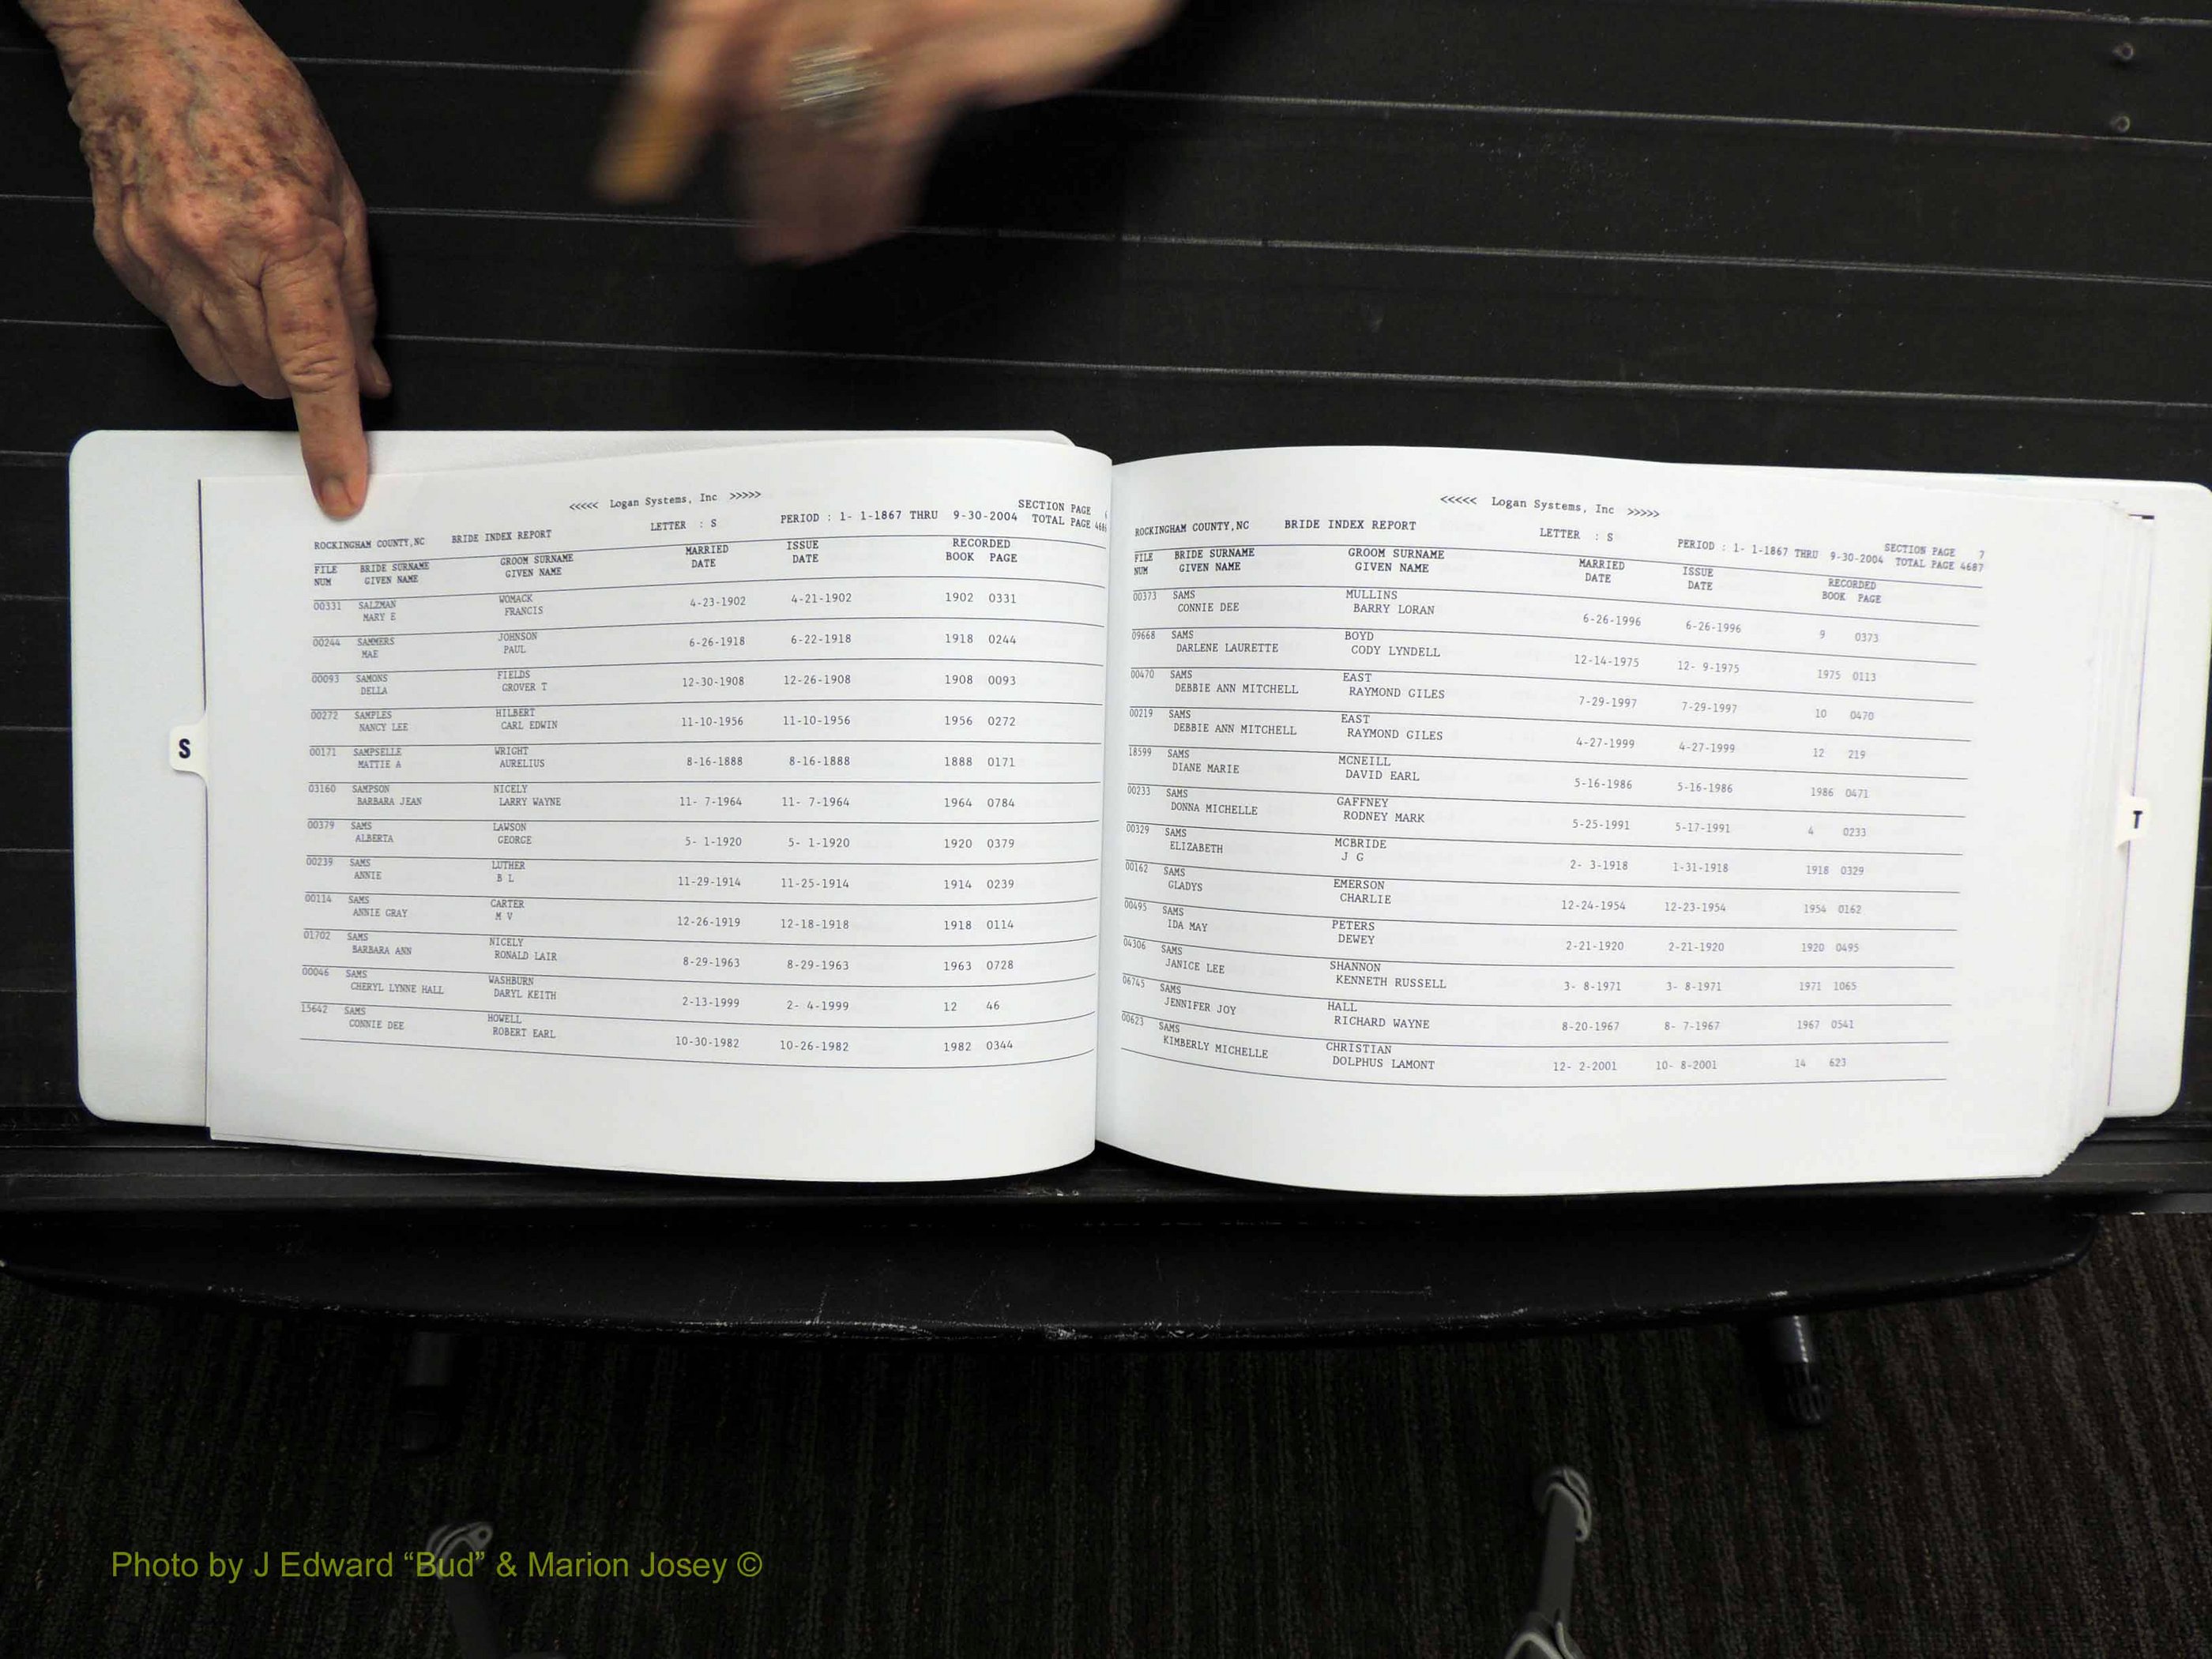 <<<<< Logan Systems, Inc >>>>>
SECTION PAGE
ROCKINGHAM COUNTY,NC BRIDE INDEX REPORT LETTER : S PERIOD : 1- 1-1867 THRU 9-30-2004 TOTAL PAGE
FILE BRIDE SURNAME GROOM SURNAME MARRIED ISSUE RECORDED
NUM GIVEN NAME GIVEN NAME DATE DATE BOOK PAGE
00331 SALZMAN WOMACK 4-23-1902 4-21-1902 1902 0331
MARY E FRANCIS
00244 SAMMERS JOHNSON 6-26-1918 6-22-1918 1918 0244
MAE PAUL
00093 SAMONS FIELDS 12-30-1908 12-26-1908 1908 0093
DELLA GROVER T
00272 SAMPLES HILBERT 11-10-1956 11-10-1956 1956 0272
NANCY LEE CARL EDWIN
00171 SAMPSELLE WRIGHT 8-16-1888 8-16-1888 1888 0171
MATTIE A AURELIUS
03160 SAMPSON NICELY 11- 7-1964 11- 7-1964 1964 0784
BARBARA JEAN LARRY WAYNE
00379 SAMS LAWSON 5- 1-1920 5- 1-1920 1920 0379
ALBERTA GEORGE
00239 SAMS LUTHER 11-29-1914 11-25-1914 1914 0239
ANNIE B L
00114 SAMS CARTER 12-26-1919 12-18-1918 1918 0114
ANNIE GRAY M V
01702 SAMS NICELY 8-29-1963 8-29-1963 1963 0728
BARBARA ANN RONALD LAIR
00046 SAMS WASHBURN 2-13-1999 2- 4-1999 12 46
CHERYL LYNNE HALL DARYL KEITH
15642 SAMS HOWELL 10-30-1982 10-26-1982 1982 0344
CONNIE DEE ROBERT EARL
S
<<<<< Logan Systems, Inc >>>>>
SECTION PAGE 7
ROCKINGHAM COUNTY,NC BRIDE INDEX REPORT LETTER : S PERIOD : 1- 1-1867 THRU 9-30-2004 TOTAL PAGE 4687
FILE BRIDE SURNAME GROOM SURNAME MARRIED ISSUE RECORDED
NUM GIVEN NAME GIVEN NAME DATE DATE BOOK PAGE
00373 SAMS MULLINS 6-26-1996 6-26-1996 9 0373
CONNIE DEE BARRY LORAN
09668 SAMS BOYD 12-14-1975 12- 9-1975 1975 0113
DARLENE LAURETTE CODY LYNDELL
00470 SAMS EAST 7-29-1997 7-29-1997 10 0470
DEBBIE ANN MITCHELL RAYMOND GILES
00219 SAMS EAST 4-27-1999 4-27-1999 12 219
DEBBIE ANN MITCHELL RAYMOND GILES
18599 SAMS MCNEILL 5-16-1986 5-16-1986 1986 0471
DIANE MARIE DAVID EARL
00233 SAMS GAFFNEY 5-25-1991 5-17-1991 4 0233
DONNA MICHELLE RODNEY MARK
00329 SAMS MCBRIDE 2- 3-1918 1-31-1918 1918 0329
ELIZABETH J G
00162 SAMS EMERSON 12-24-1954 12-23-1954 1954 0162
GLADYS CHARLIE
00495 SAMS PETERS 2-21-1920 2-21-1920 1920 0495
IDA MAY DEWEY
04306 SAMS SHANNON 3- 8-1971 3- 8-1971 1971 1065
JANICE LEE KENNETH RUSSELL
06745 SAMS HALL 8-20-1967 8- 7-1967 1967 0541
JENNIFER JOY RICHARD WAYNE
00623 SAMS CHRISTIAN 12- 2-2001 10- 8-2001 14 623
KIMBERLY MICHELLE DOLPHUS LAMONT
T
Photo by J Edward “Bud” & Marion Josey ©